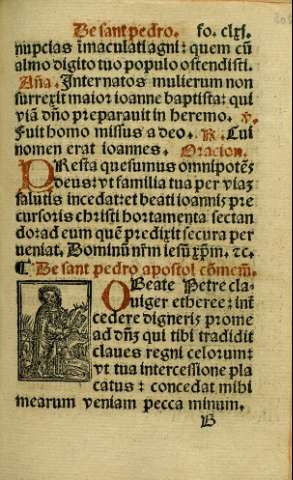 De sant pedro. fo. clxj.
nupcias īmaculati agni: quem cū
almo digito tuo populo ostendisti.
Aña. Inter natos mulierum non
surrexit maior ioanne baptista: qui
viā dño preparauit in heremo. ℣.
Fuit homo missus a deo. ℟. Cui
nomen erat ioannes. Oracion.
PResta quesumus omnipotēs
deus: vt familia tua per viaȝ
salutis incedat: et beati ioannis pre
cursoris christi hortamenta sectan
do: ad eum quē predixit secura per
ueniat. Dominū nr̄m iesū xp̄m. ⁊c.
¶ De sant pedro apostol cōmem̄.
OBeate Petre cla-
uiger etheree: int
cedere digneris pro me
ad dn̄ȝ qui tibi tradidit
claues regni celorum:
vt tua intercessione pla
catus: concedat mihi
mearum veniam pecca minum.
B